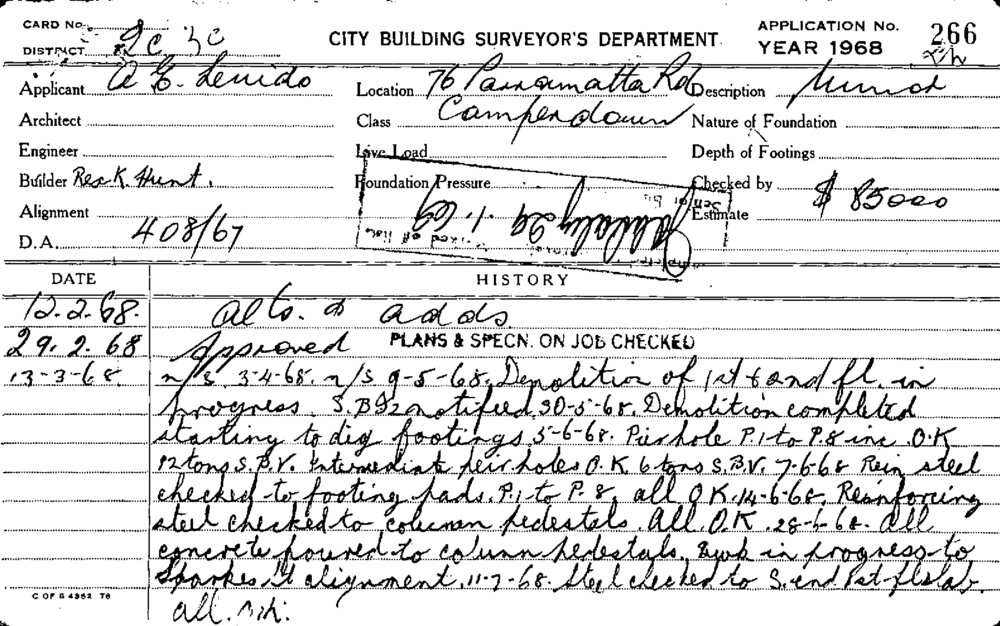 CARD No.
DISTRICT
CITY BUILDING SURVEYOR'S DEPARTMENT
APPLICATION No. 266
YEAR 1968
Applicant A E. Location 76 Parramatta Rd Description
Architect Class Camperdown Nature of Foundation
Engineer Live Load Depth of Footings
Builder Rex K. Hunt. Foundation Pressure Checked by
Alignment Estimate $ 85000
D.A. 408/67
DATE HISTORY
12.2.68. Alts. & adds
29.2.68 Approved PLANS & SPECN. ON JOB CHECKED
13-3-68. n/s. 3-4-68. n/s 9-5-68. Demolition of 1st & 2nd fl. in
progress. notified 30-5-68. Demolition completed
starting to dig footings 5-6-68. Pier hole P.1 to P.8 inc. O.K
12 tons S.B.V. Intermediate pier holes O.K. 6 tons S.B.V. 7-6-68 Rein steel
checked to footing pads. P.1 to P.8, all O.K. 14-6-68. Reinforcing
steel checked to column pedestals. All O.K. 28-6-68. All
concrete poured to column pedestals. Bwk in progress to
alignment. 11-7-68. Steel checked to S. end 1st fl slab.
all.
C OF S 4352 76